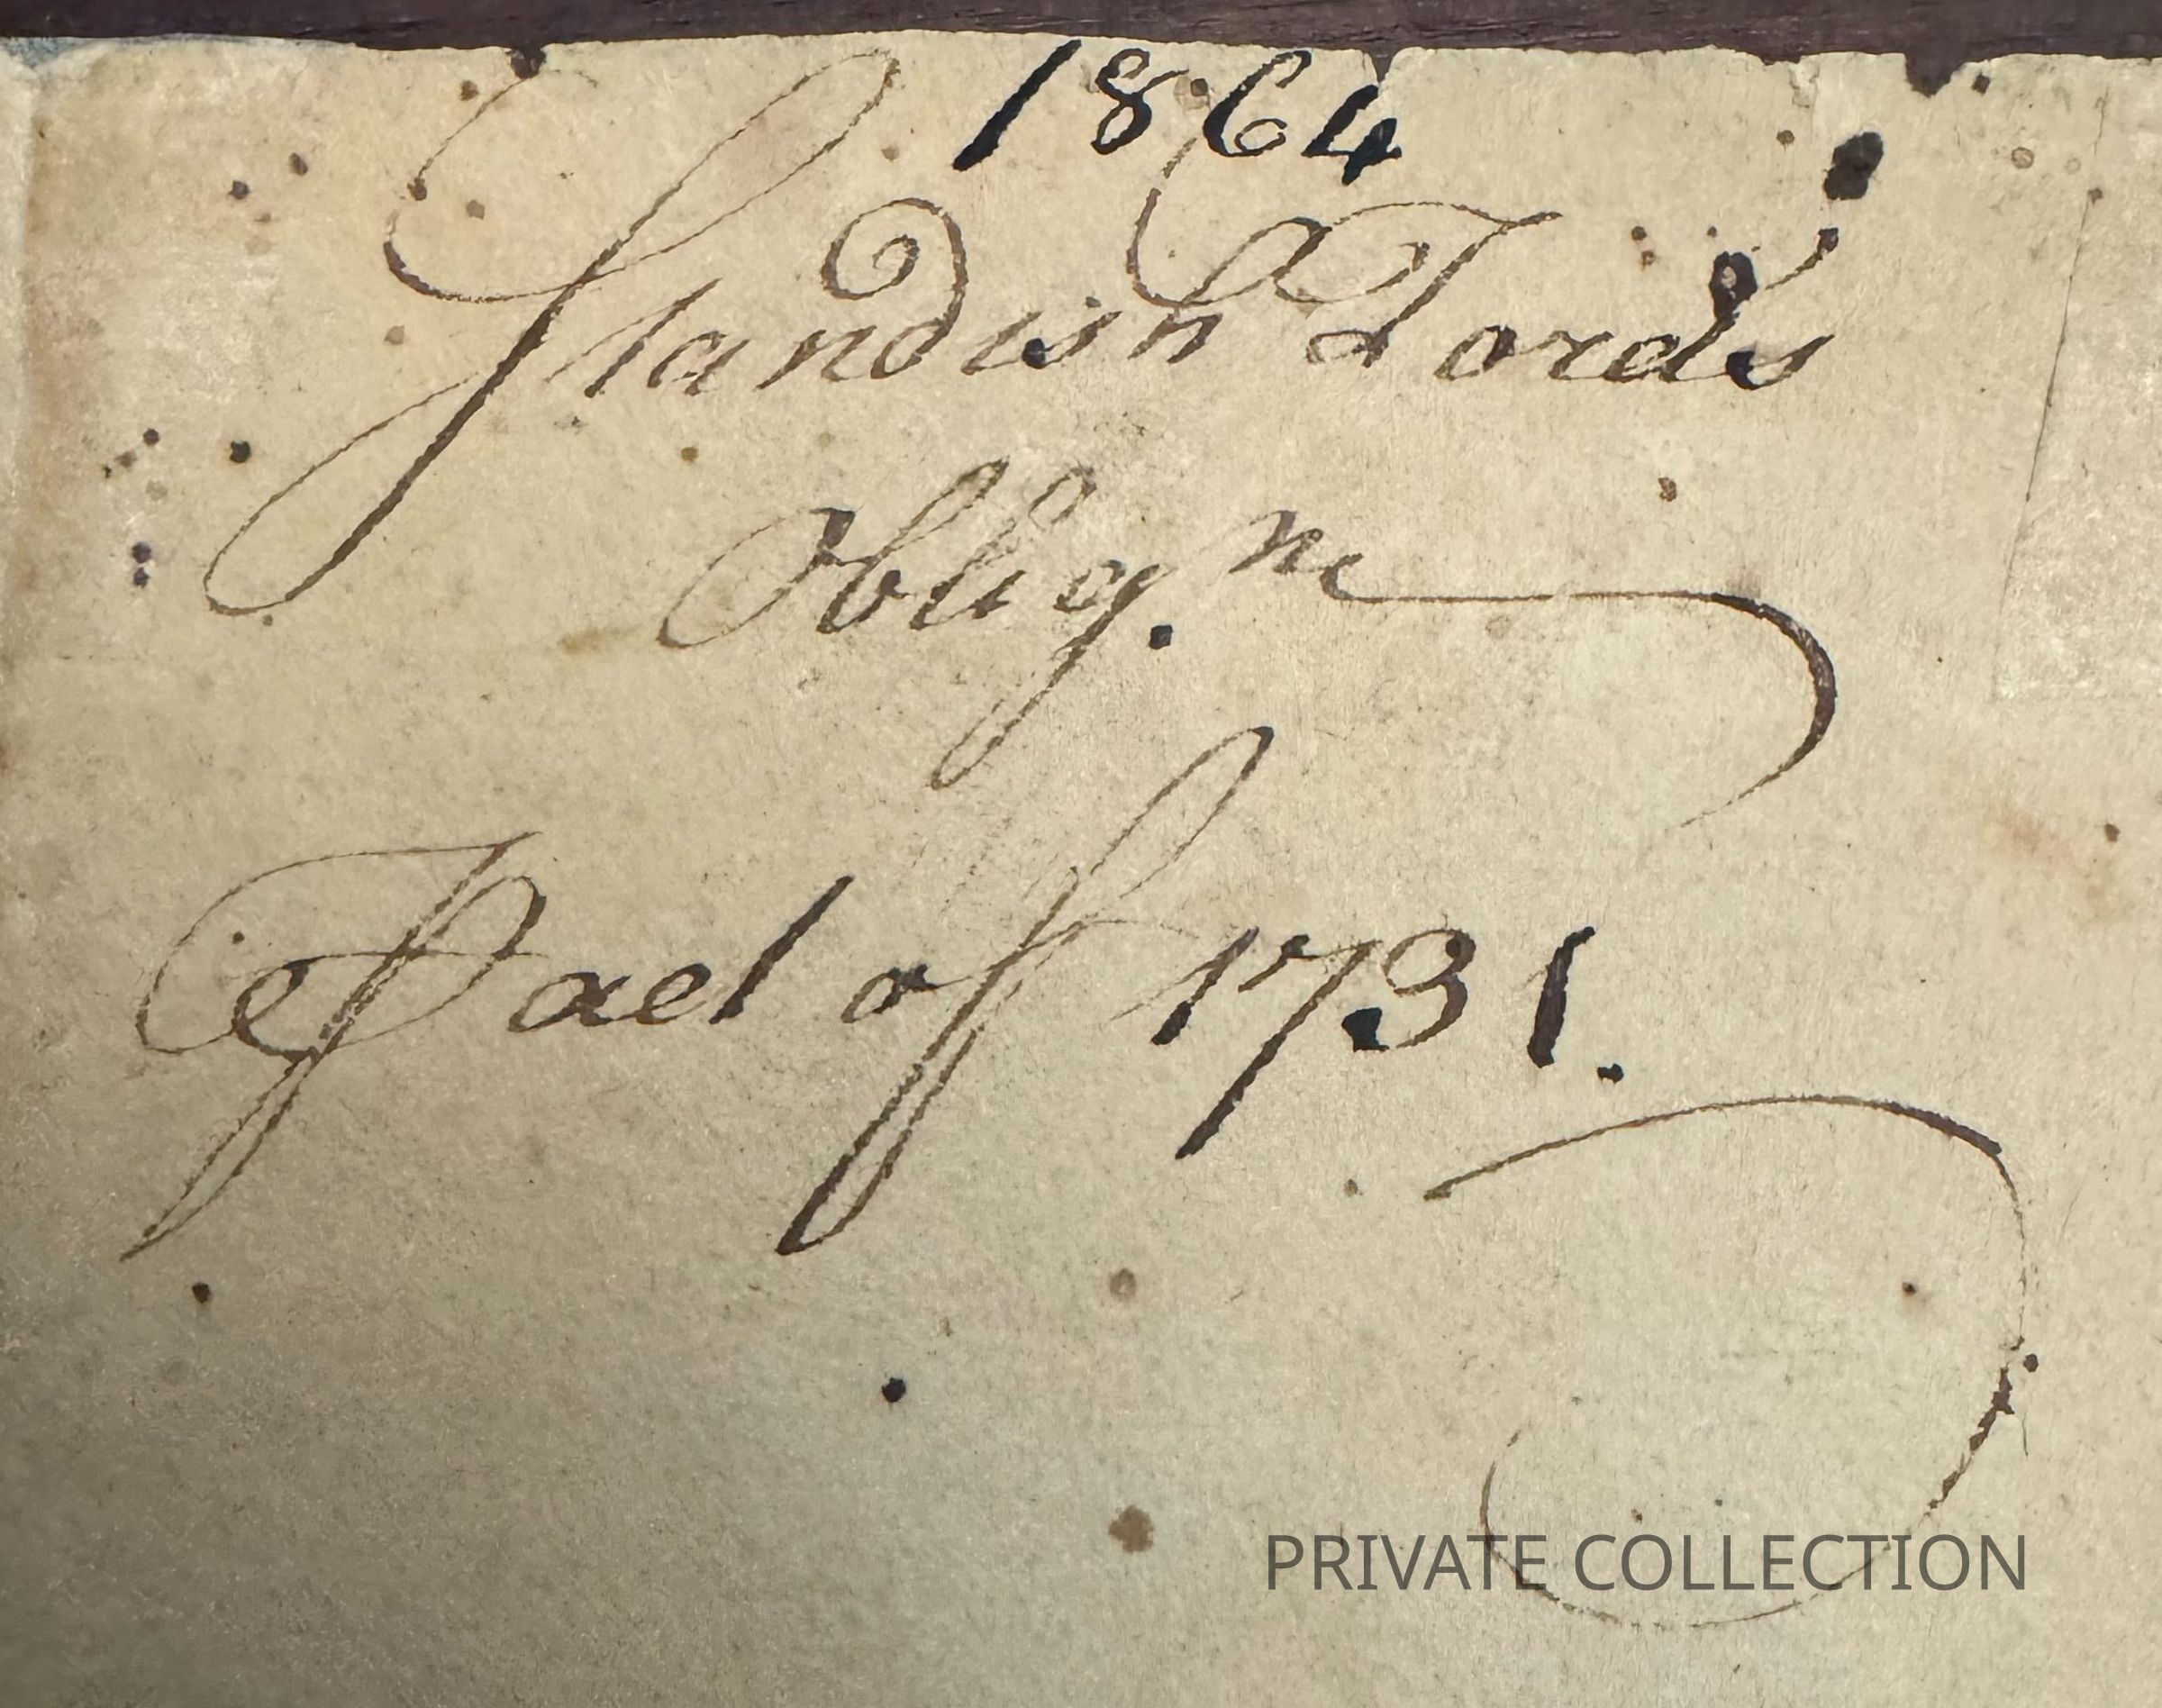 1864
Standish Ford's
Oblig.n
Pael of 1731.
PRIVATE COLLECTION